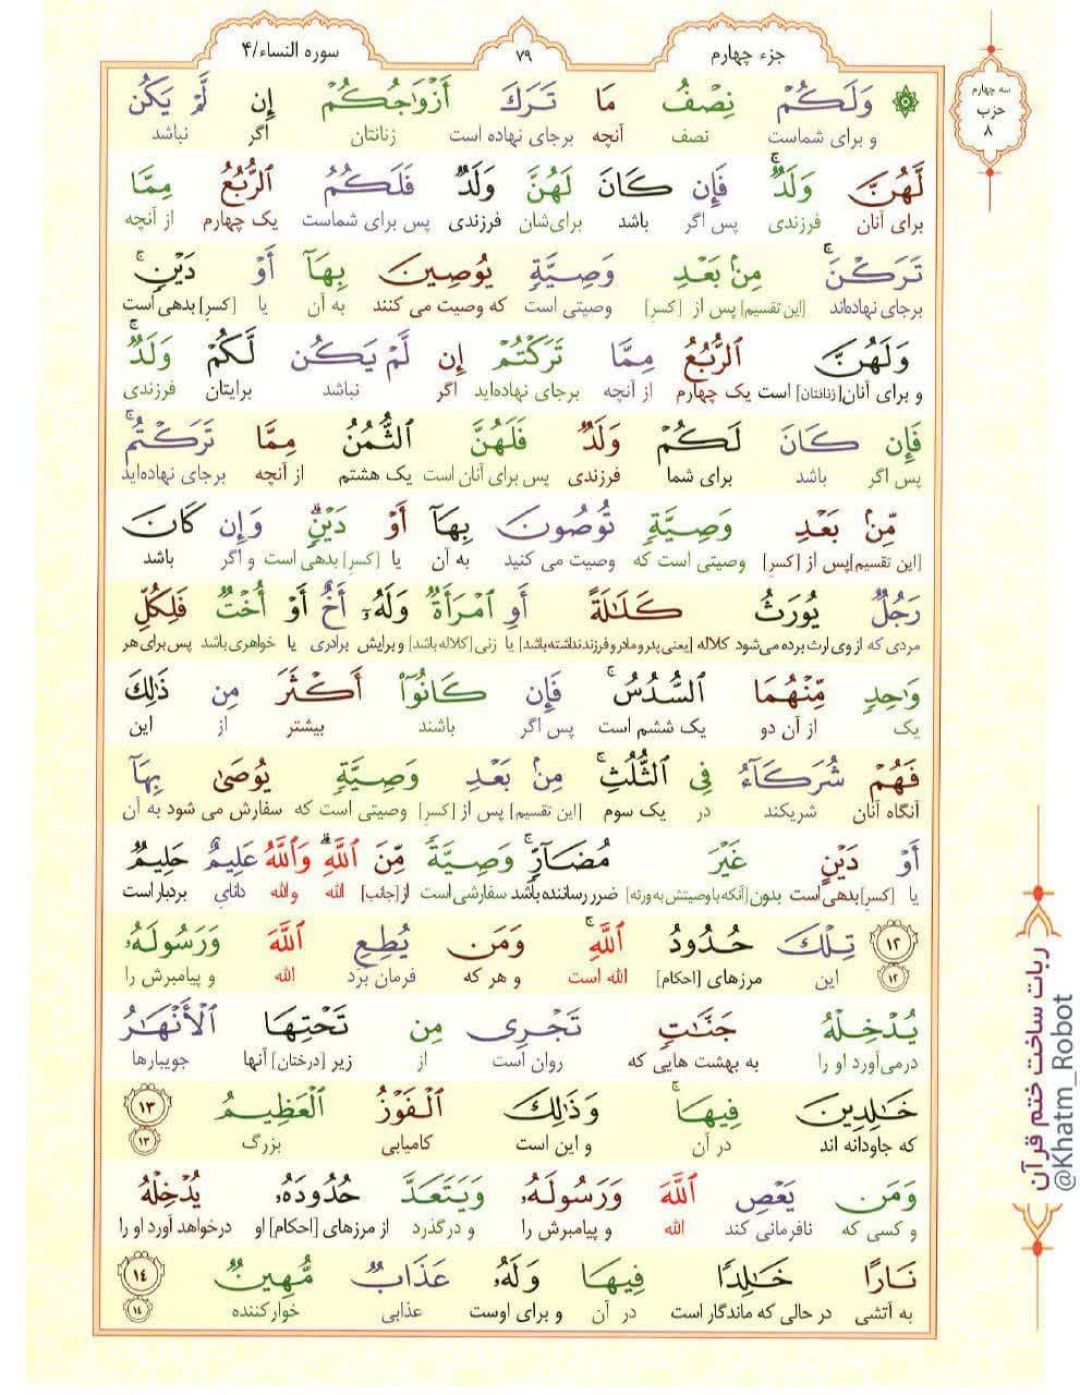 جزء چهارم
۷۹
سوره النساء/۴
سه چهارم
حزب
۸
وَلَكُمْ نِصْفُ مَا تَرَكَ أَزْوَاجُكُمْ إِن لَّمْ يَكُن
و برای شماست نصف آنچه برجای نهاده است زنانتان اگر نباشد
لَّهُنَّ وَلَدٌ ۚ فَإِن كَانَ لَهُنَّ وَلَدٌ فَلَكُمُ ٱلرُّبُعُ مِمَّا
برای آنان فرزندی پس اگر باشد برای‌شان فرزندی پس برای شماست یک چهارم از آنچه
تَرَكْنَ ۚ مِنۢ بَعْدِ وَصِيَّةٍ يُوصِينَ بِهَآ أَوْ دَيْنٍ ۚ
برجای نهاده‌اند [این تقسیم] پس از [کسر] وصیتی است که وصیت می کنند به آن یا [کسر] بدهی است
وَلَهُنَّ ٱلرُّبُعُ مِمَّا تَرَكْتُمْ إِن لَّمْ يَكُن لَّكُمْ وَلَدٌ ۚ
و برای آنان [زنانتان] است یک چهارم از آنچه برجای نهاده‌اید اگر نباشد برایتان فرزندی
فَإِن كَانَ لَكُمْ وَلَدٌ فَلَهُنَّ ٱلثُّمُنُ مِمَّا تَرَكْتُم ۚ
پس اگر باشد برای شما فرزندی پس برای آنان است یک هشتم از آنچه برجای نهاده‌اید
مِّنۢ بَعْدِ وَصِيَّةٍ تُوصُونَ بِهَآ أَوْ دَيْنٍ ۗ وَإِن كَانَ
[این تقسیم] پس از [کسر] وصیتی است که وصیت می کنید به آن یا [کسر] بدهی است و اگر باشد
رَجُلٌ يُورَثُ كَلَـٰلَةً أَوِ ٱمْرَأَةٌ وَلَهُۥٓ أَخٌ أَوْ أُخْتٌ فَلِكُلِّ
مردی که از وی ارث برده می‌شود کلاله [یعنی پدر و مادر و فرزند نداشته باشد] یا زنی [کلاله باشد] و برایش برادری یا خواهری باشد پس برای هر
وَٰحِدٍ مِّنْهُمَا ٱلسُّدُسُ ۚ فَإِن كَانُوٓا۟ أَكْثَرَ مِن ذَٰلِكَ
یک از آن دو یک ششم است پس اگر باشند بیشتر از این
فَهُمْ شُرَكَآءُ فِى ٱلثُّلُثِ ۚ مِنۢ بَعْدِ وَصِيَّةٍ يُوصَىٰ بِهَآ
آنگاه آنان شریکند در یک سوم [این تقسیم] پس از [کسر] وصیتی است که سفارش می شود به آن
أَوْ دَيْنٍ غَيْرَ مُضَآرٍّ ۚ وَصِيَّةً مِّنَ ٱللَّهِ ۗ وَٱللَّهُ عَلِيمٌ حَلِيمٌ
یا [کسر] بدهی است بدون [آنکه با وصیتش به ورثه] ضرر رساننده باشد سفارشی است از [جانب] الله والله دانای بردبار است
۱۲ تِلْكَ حُدُودُ ٱللَّهِ ۚ وَمَن يُطِعِ ٱللَّهَ وَرَسُولَهُۥ
۱۲ این مرزهای [احکام] الله است و هر که فرمان برد الله و پیامبرش را
يُدْخِلْهُ جَنَّـٰتٍ تَجْرِى مِن تَحْتِهَا ٱلْأَنْهَـٰرُ
درمی‌آورد او را به بهشت هایی که روان است از زیر [درختان] آنها جویبارها
خَـٰلِدِينَ فِيهَا ۚ وَذَٰلِكَ ٱلْفَوْزُ ٱلْعَظِيمُ ۱۳
که جاودانه اند در آن و این است کامیابی بزرگ ۱۳
وَمَن يَعْصِ ٱللَّهَ وَرَسُولَهُۥ وَيَتَعَدَّ حُدُودَهُۥ يُدْخِلْهُ
و کسی که نافرمانی کند الله و پیامبرش را و درگذرد از مرزهای [احکام] او درخواهد آورد او را
نَارًا خَـٰلِدًا فِيهَا وَلَهُۥ عَذَابٌ مُّهِينٌ ١٤
به آتشی در حالی که ماندگار است در آن و برای اوست عذابی خوارکننده ١٤
ربات ساخت ختم قرآن
@Khatm_Robot